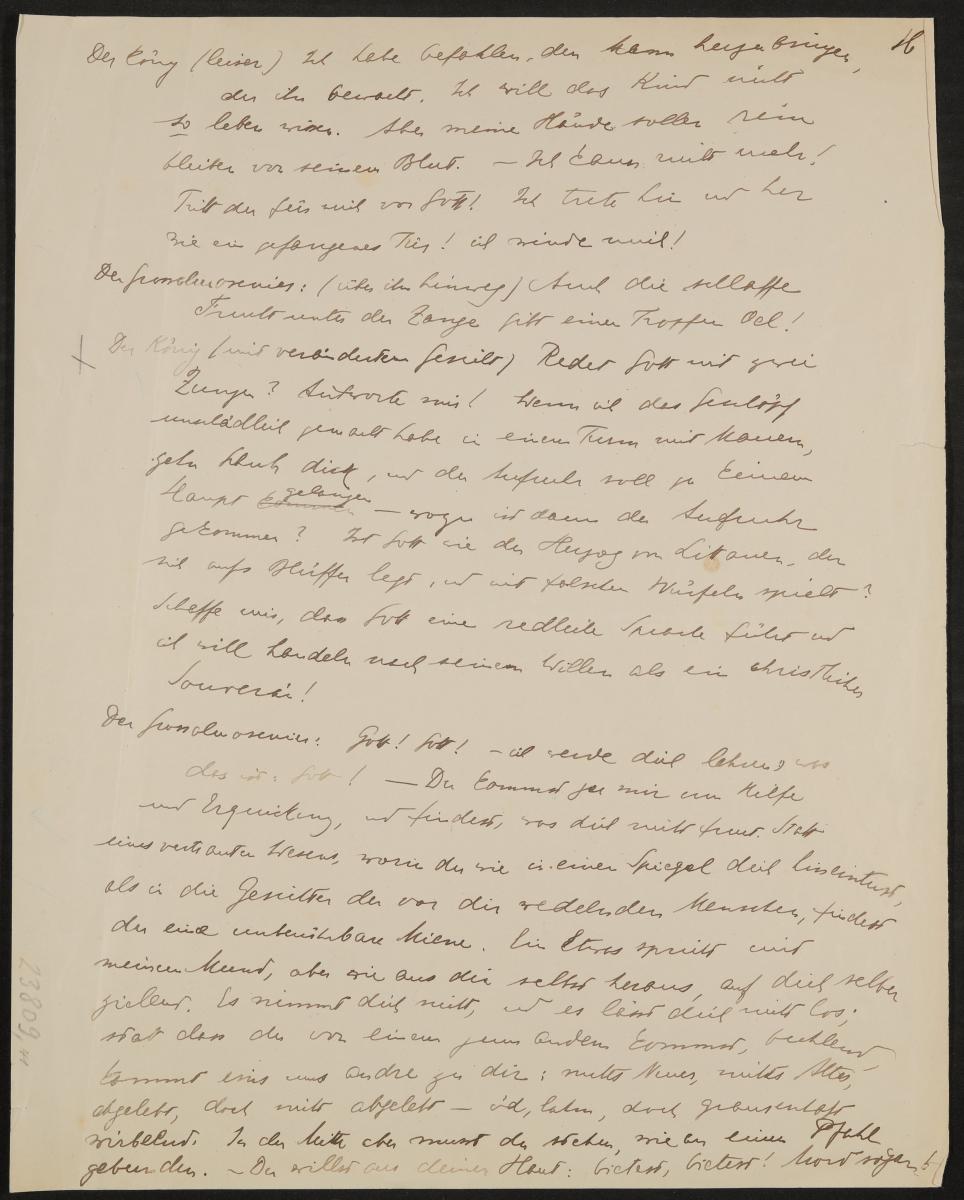 16
Der König (leiser) Ich habe befohlen, den Mann herzubringen,
der ihn bewacht. Ich will das Kind nicht
so leben wissen. Aber meine Hände sollen rein
bleiben von seinem Blut. – Ich kann nicht mehr!
Tritt du für mich vor Gott! Ich trete hin und her
wie ein gefangenes Tier! ich winde mich!
Der Grossalmosenier: (über ihn hinweg) Auch die schlaffe
Frucht unter der Zange gibt einen Tropfen Oel!
Der König (mit verändertem Gesicht) Redet Gott mit zwei
Zungen? Antworte mir! Wenn ich das Geschöpf
unschädlich gemacht habe in einem Turm mit Mauern,
zehn Schuh dick, und der Aufruhr soll zu keinem
Haupt kommen gelangen – wozu ist dann der Aufruhr
gekommen? Ist Gott wie der Herzog von Littauen, der
sich aufs Bluffen legt, und mit falschen Würfeln spielt?
Schaffe mir, dass Gott eine redliche Sprache führt und
ich will handeln nach seinem Willen als ein christlicher
Souverän!
Der Grossalmosenier: Gott! Gott! – ich werde dich lehren, was
das ist: Gott! – Du kommst zu mir um Hilfe
und Erquickung, und findest, was dich nicht freut. Statt
eines vertrauten Wesens, worin du wie in einen Spiegel dich hineintust,
als in die Gesichter der vor dir wedelnden Menschen, findest
du eine unberührbare Miene. Ein Etwas spricht mit
meinem Mund, aber wie aus dir selbst heraus, auf dich selber
zielend. Es nimmt dich nicht, und es lässt dich nicht los;
statt dass du von einem zum andern kommst, buhlend,
kommt eins ums andre zu dir: nichts Neues, nichts Altes,
abgelebt, doch nicht abgelebt – öd, lahm, doch grausenhaft
wirbelnd. In der Mitte aber musst du stehen, wie an einen Pfahl
gebunden. – Du willst aus deiner Haut: bietest, bietest! Mord sogar!
23809,11